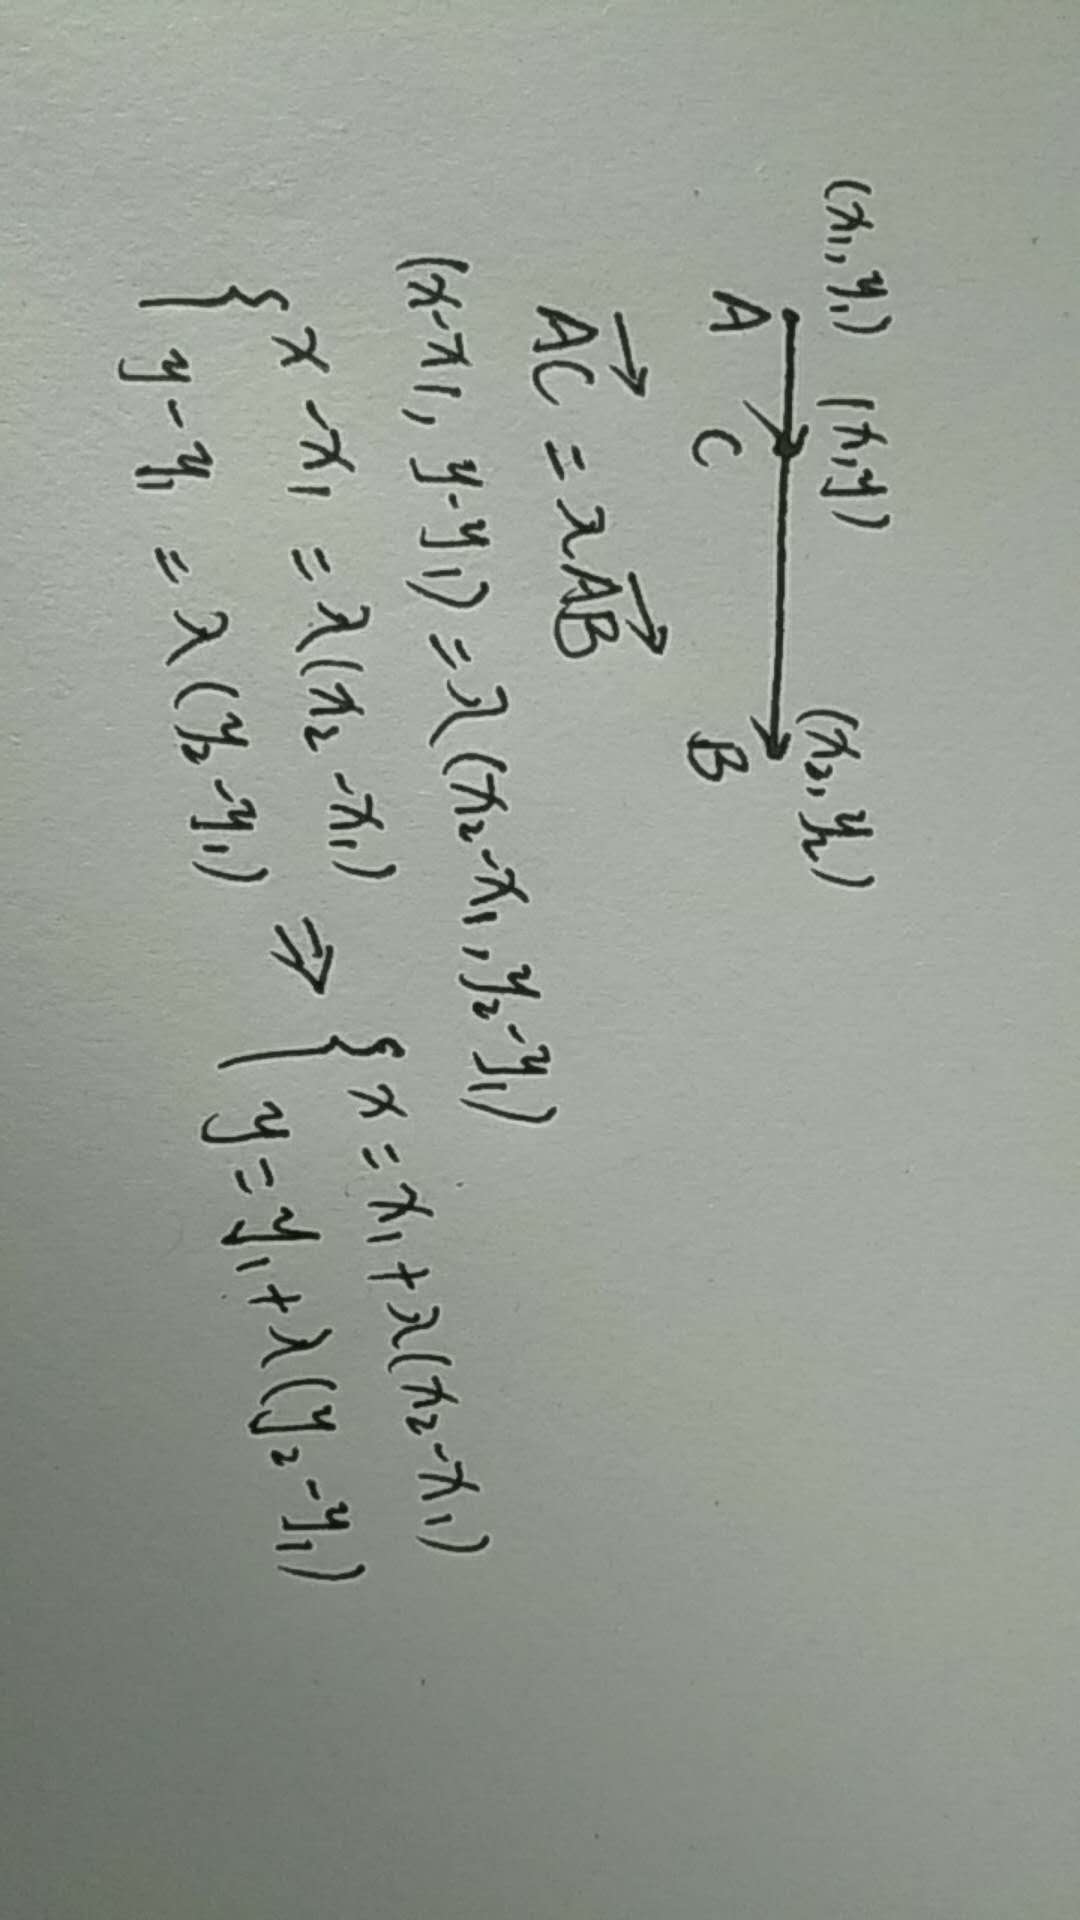 (x₁, y₁) (x, y) (x₂, y₂)
A C B
AC⃗ = λAB⃗
(x-x₁, y-y₁) = λ(x₂-x₁, y₂-y₁)
{ x-x₁ = λ(x₂-x₁) ⇒ { x = x₁+λ(x₂-x₁)
y-y₁ = λ(y₂-y₁) y = y₁+λ(y₂-y₁)